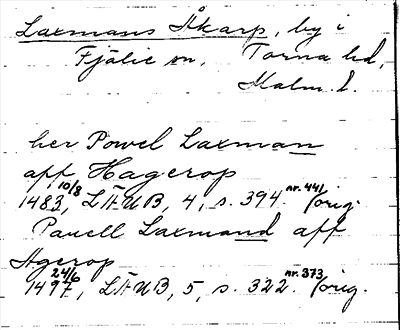 Laxmans Åkarp, by i
Fjälie sn, Torna hd,
Malm. l.
her Powel Laxman
aff Hagerop
1483 10/8, LÄUB, 4, s. 394. nr. 441 /orig.
Pauell Laxmand aff
Agerop
1497 24/6, LÄUB, 5, s. 322. nr. 373 /orig.